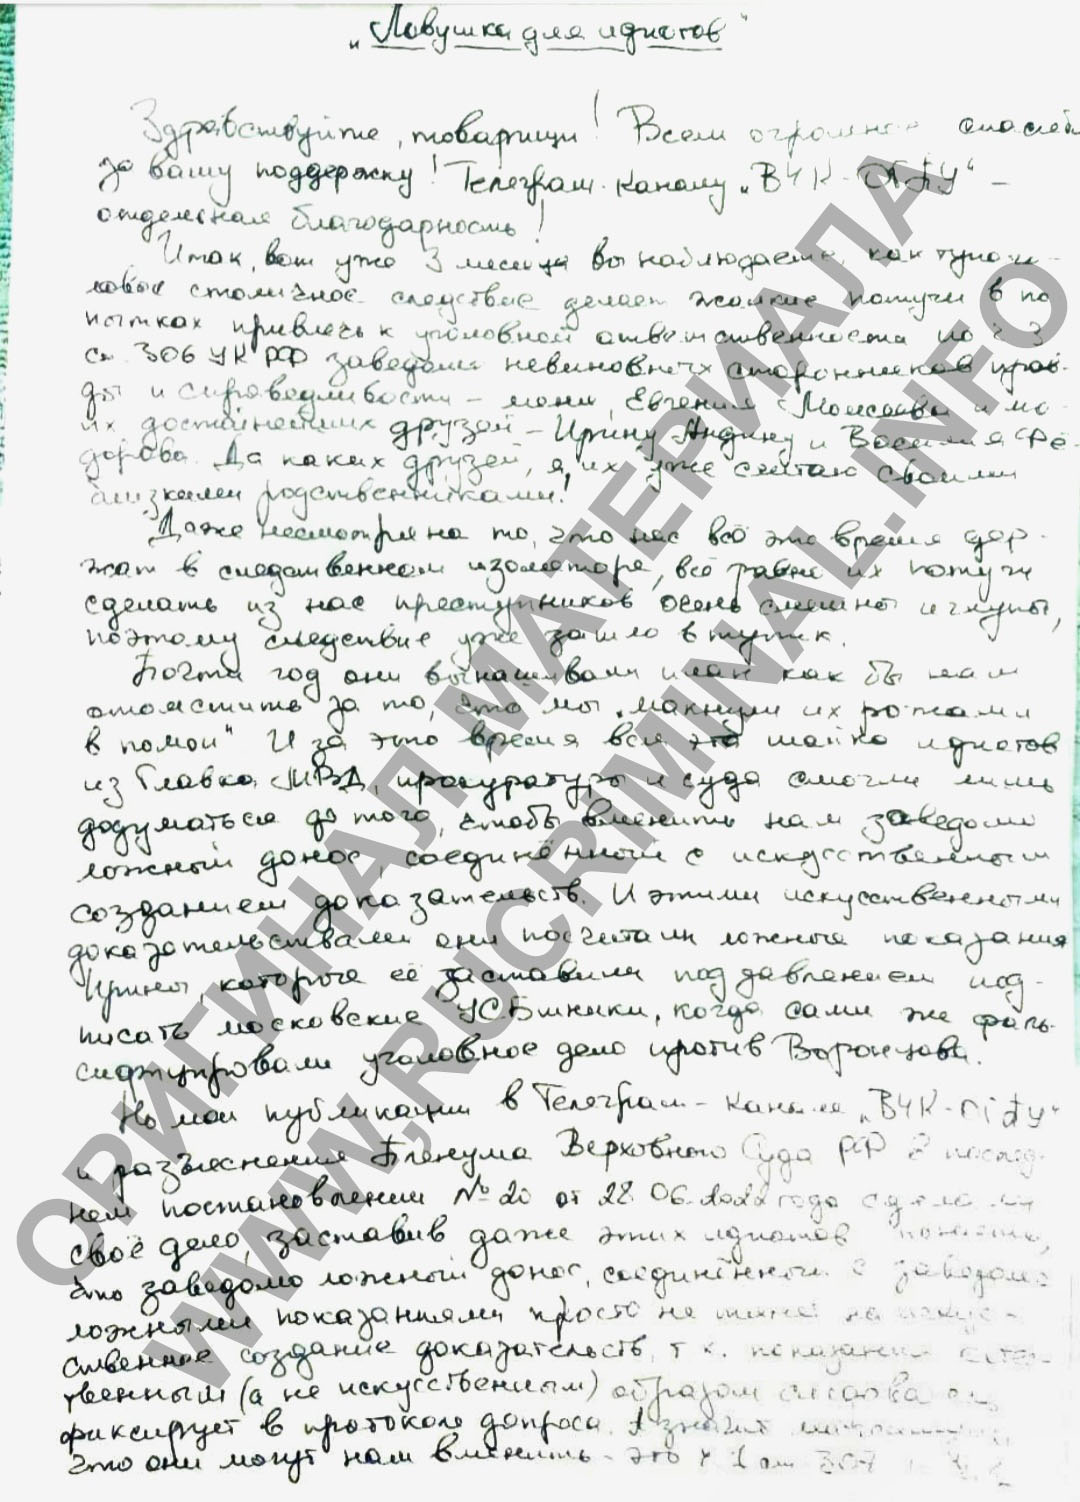 „Ловушка для идиотов"
Здравствуйте, товарищи! Всем огромное спасибо
за вашу поддержку! Телеграм-каналу „ВЧК-ОГПУ" –
отдельная благодарность!
Итак, вот уже 3 месяца вы наблюдаете, как тупого-
ловое столичное следствие делает жалкие потуги в по
пытках привлечь к уголовной ответственности по ч 3
ст. 306 УК РФ заведомо невиновных сторонников прав-
ды и справедливости – меня, Евгения Моисеева и мо-
их достойнейших друзей – Ирину Андину и Василия Фё-
дорова. Да каких друзей, я их уже считаю своими
близкими родственниками!
Даже несмотря на то, что нас всё это время дер-
жат в следственном изоляторе, всё равно их потуги
сделать из нас преступников очень смешны и глупы,
поэтому следствие уже зашло в тупик.
Почти год они вынашивали план как бы нам
отомстить за то, что мы „макнули их рожами
в помои" И за это время вся эта шайка идиотов
из Главка МВД, прокуратуры и суда смогли лишь
додуматься до того, чтобы вменить нам заведомо
ложный донос, соединённый с искусственным
созданием доказательств. И этими искусственными
доказательствами они посчитали ложные показания
Ирины, которые её заставили под давлением под-
писать московские УСБшники, когда сами же фаль-
сифицировали уголовное дело против Воронцова.
Но мои публикации в Телеграм-канале „ВЧК-ОГПУ"
и разъяснения Пленума Верховного Суда РФ в послед-
нем постановлении № 20 от 28.06.2022 года сделали
своё дело, заставив даже этих идиотов понять,
что заведомо ложный донос, соединённый с заведомо
ложными показаниями просто не тянет на искус-
ственное создание доказательств, т к. показания естес-
твенным (а не искусственным) образом
фиксирует в протокол допроса. А значит
что они могут нам вменить – это ч 1 ст 307
ОРИГИНАЛ МАТЕРИАЛА
WWW.RUCRIMINAL.INFO